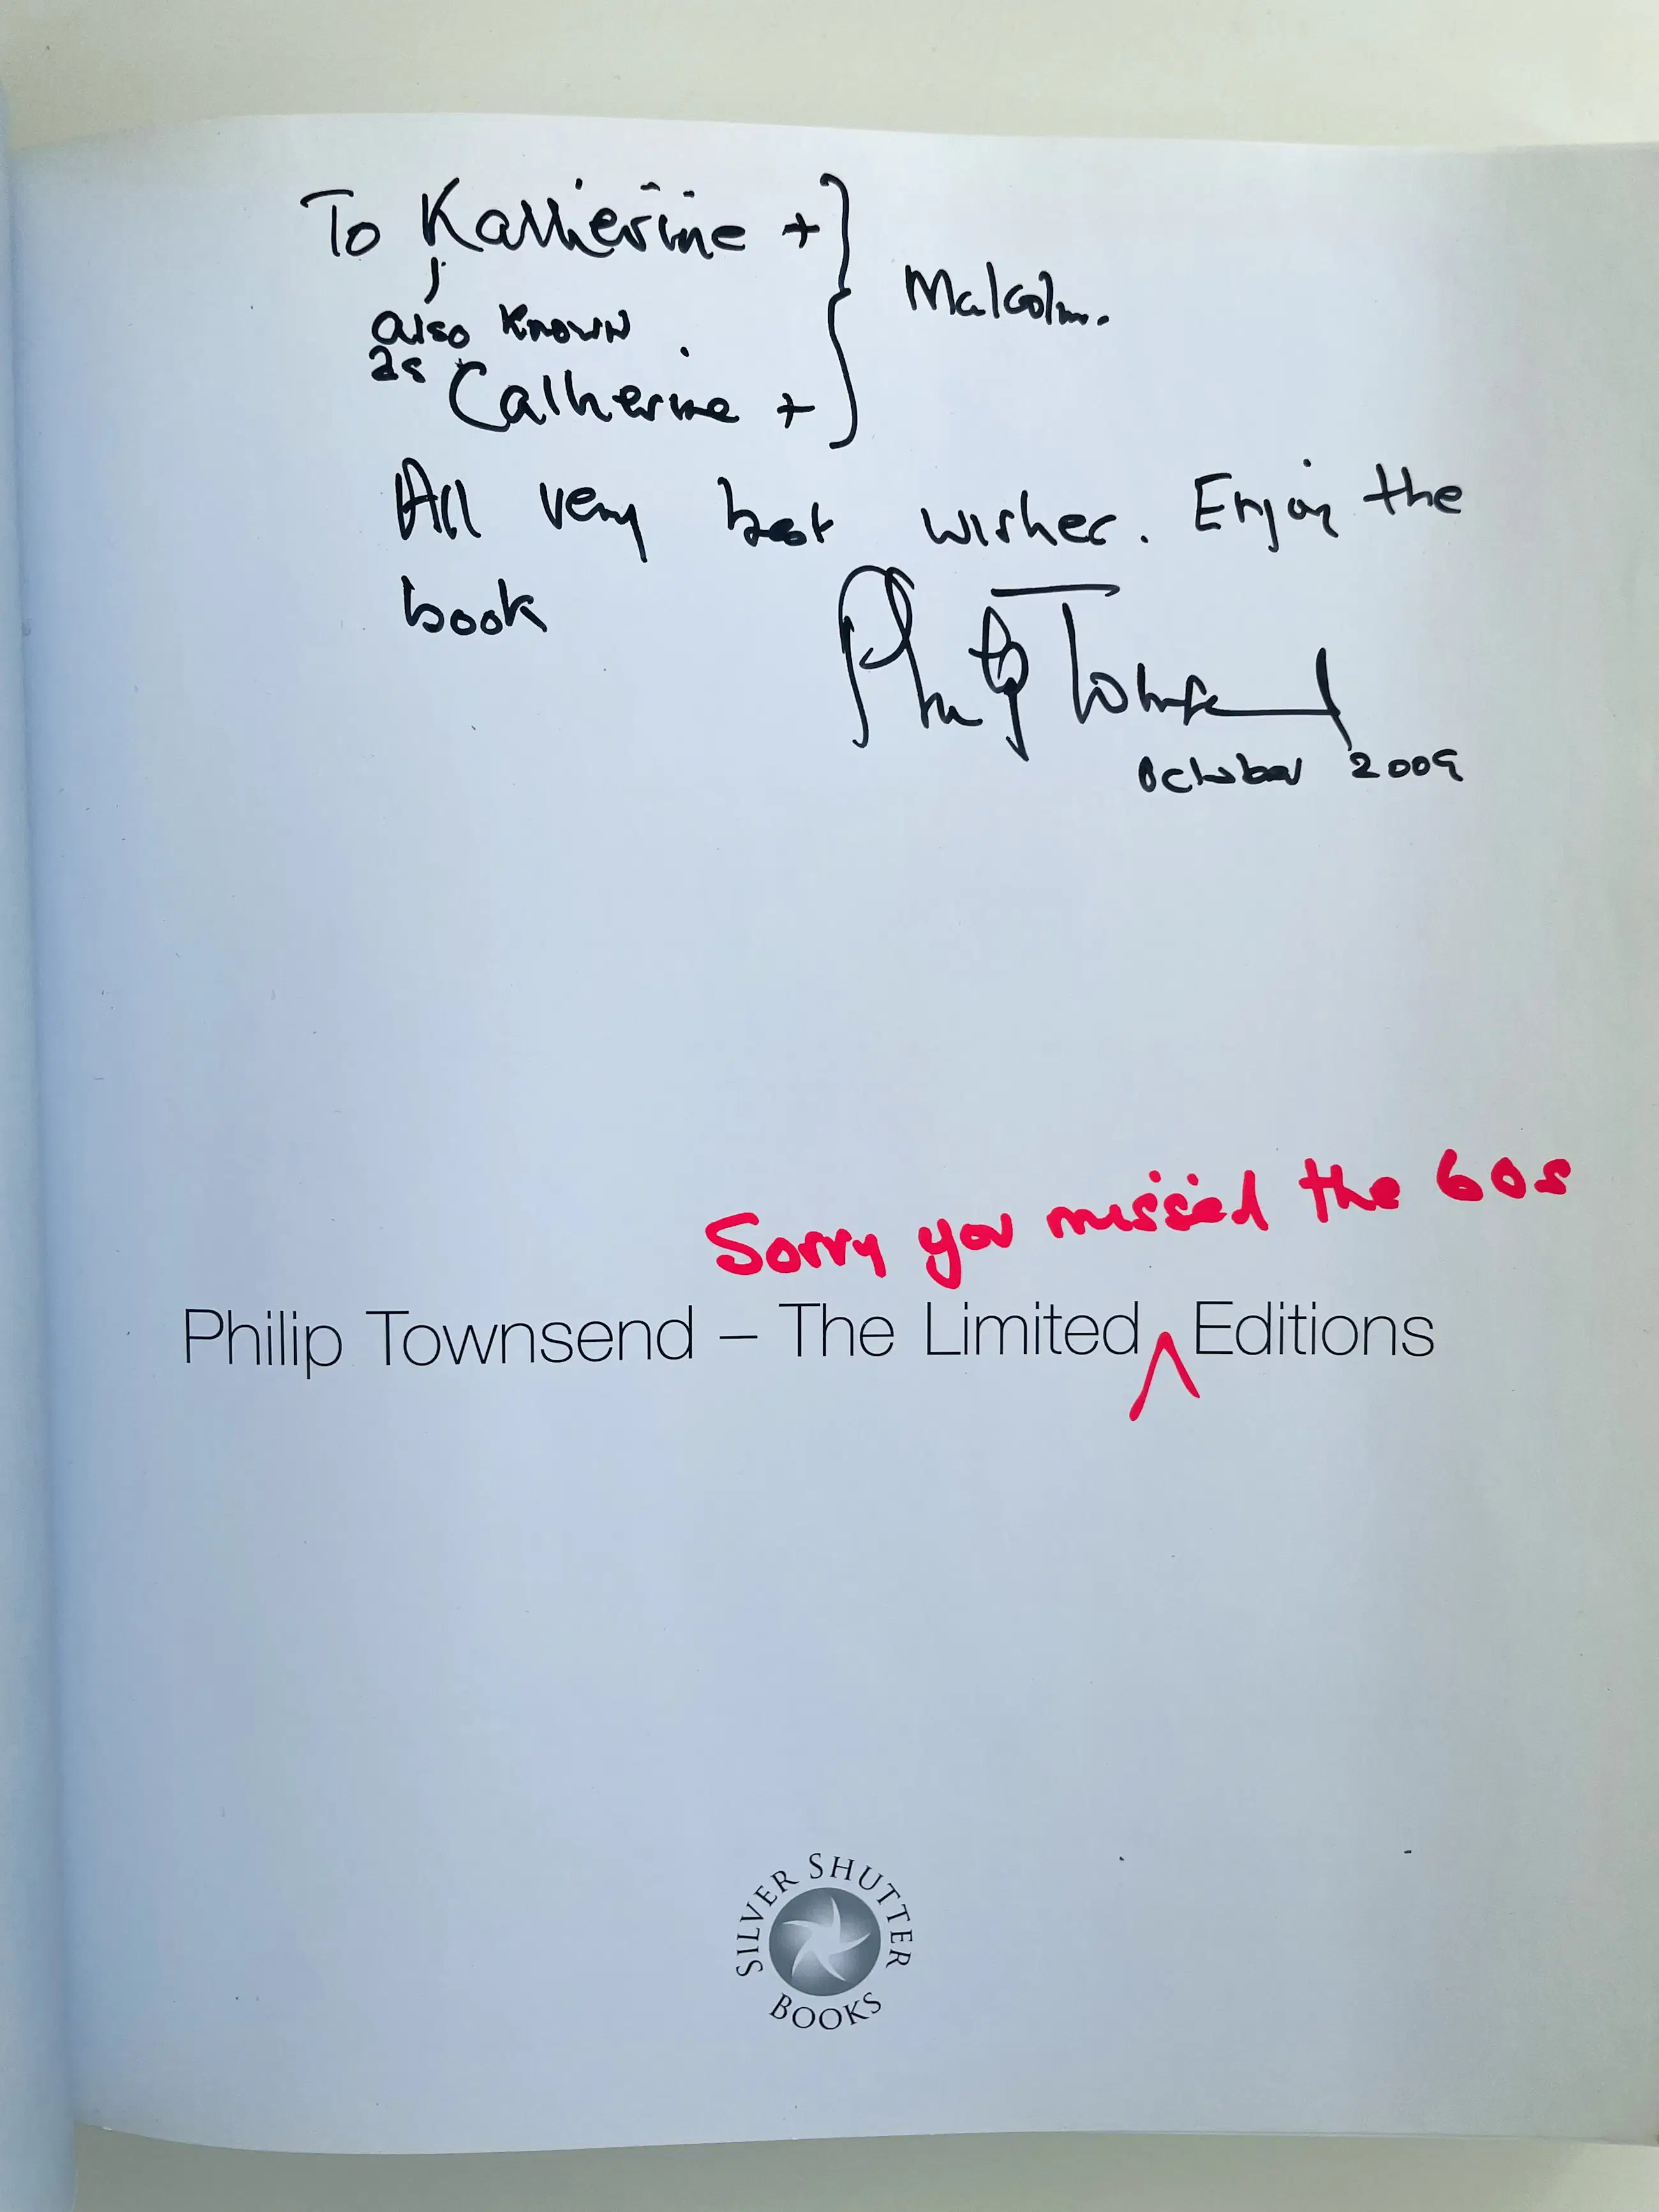 To Katherine +
Malcolm.
also known
as Catherine +
All very best wishes. Enjoy the
book
Philip Townsend
October 2009
Sorry you missed the 60s
Philip Townsend – The Limited ^ Editions
SILVER SHUTTER
BOOKS